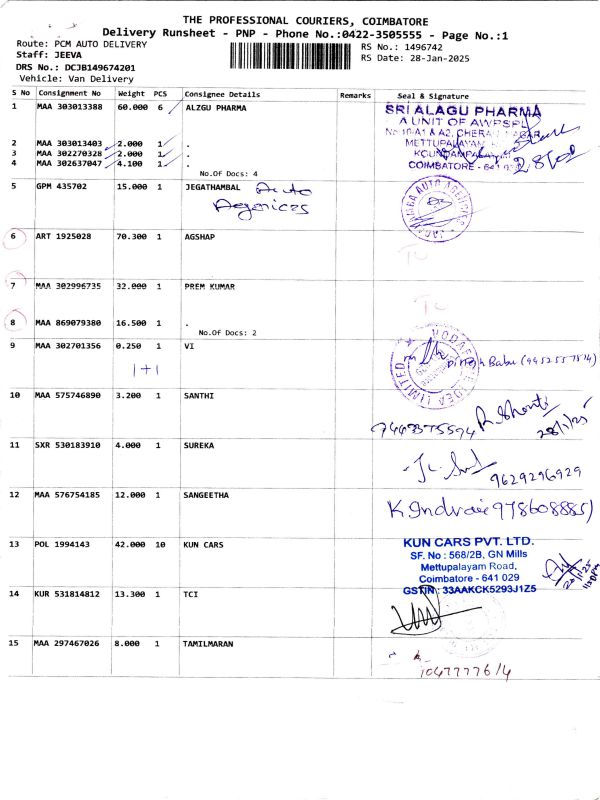 THE PROFESSIONAL COURIERS, COIMBATORE
Delivery Runsheet - PNP - Phone No.:0422-3505555 - Page No.:1
Route: PCM AUTO DELIVERY
Staff: JEEVA
DRS No.: DCJB149674201
Vehicle: Van Delivery
RS No.: 1496742
RS Date: 28-Jan-2025
S No Consignment No Weight PCS Consignee Details Remarks Seal & Signature
1 MAA 303013388 60.000 6 ALZGU PHARMA
SRI ALAGU PHARMA
A UNIT OF AWPSPL
METTUPALAYAM
COIMBATORE - 641
2 MAA 303013403 2.000 1 .
3 MAA 302270328 2.000 1 .
4 MAA 302637047 4.100 1 .
No.Of Docs: 4
5 GPM 435702 15.000 1 JEGATHAMBAL Auto
Agenices
6 ART 1925028 70.300 1 AGSHAP
TL
7 MAA 302996735 32.000 1 PREM KUMAR
TL
8 MAA 869079380 16.500 1 .
No.Of Docs: 2
9 MAA 302701356 0.250 1 VI
1+1
VODAFONE IDEA LIMITED
Babu (9952557514)
10 MAA 575746890 3.200 1 SANTHI
28/1/25
11 SXR 530183910 4.000 1 SUREKA
9629296929
12 MAA 576754185 12.000 1 SANGEETHA
13 POL 1994143 42.000 10 KUN CARS
KUN CARS PVT. LTD.
SF. No : 568/2B, GN Mills
Mettupalayam Road,
Coimbatore - 641 029
GSTIN : 33AAKCK5293J1Z5
14 KUR 531814812 13.300 1 TCI
15 MAA 297467026 8.000 1 TAMILMARAN